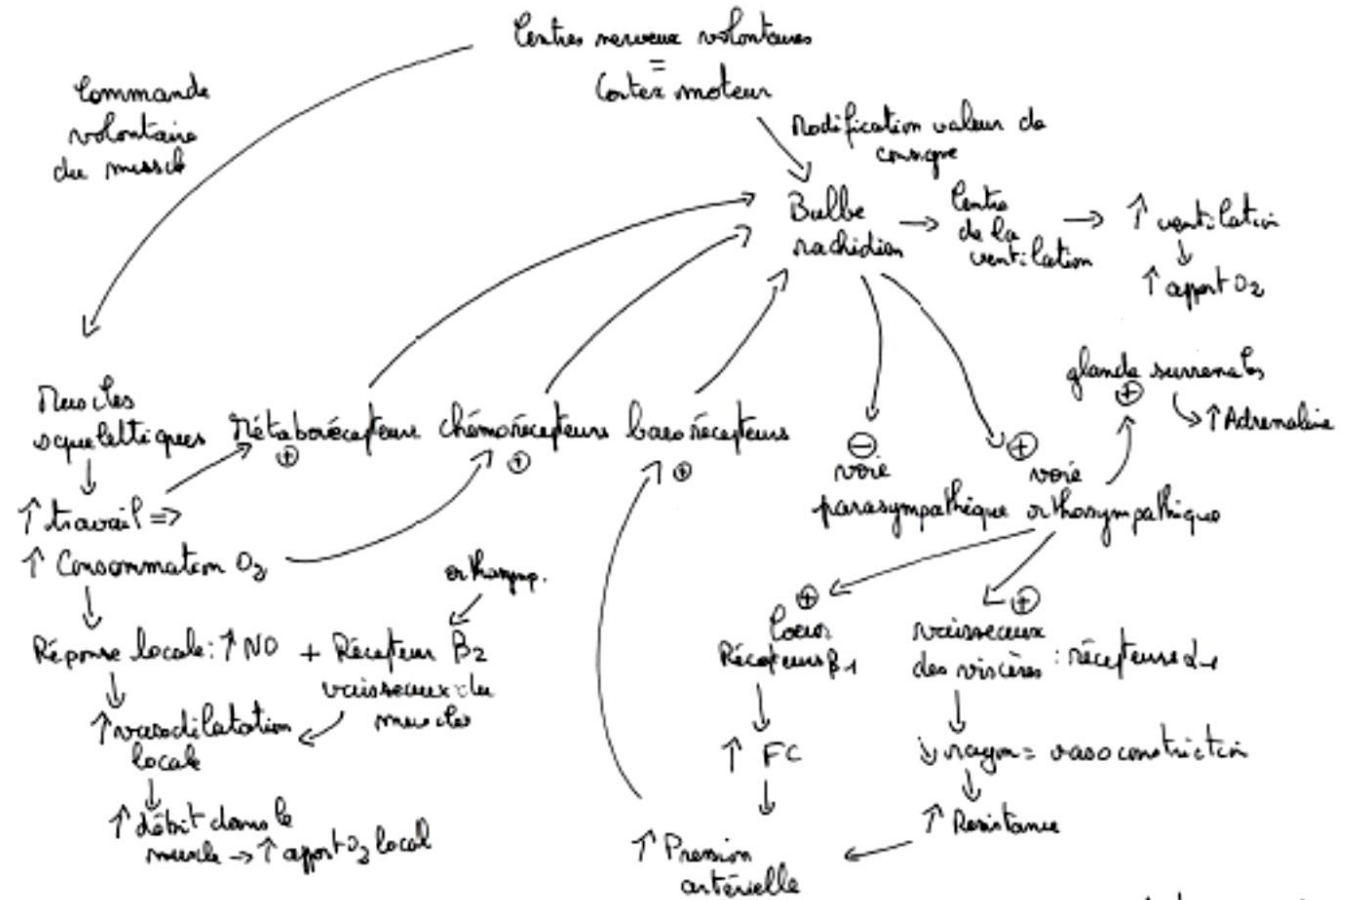 Centres nerveux volontaires
=
Cortex moteur
Commande
volontaire
du muscle
Modification valeur de
consigne
Bulbe
rachidien
Centre
de la
ventilation
↑ ventilation
↑ apport O2
glande surrenales
⊕
↑ Adrenaline
Muscles
squelettiques
Métaborécepteurs chémorécepteurs barorécepteurs
⊕ ⊕ ⊕
⊖
voie
parasympathique
⊕
voie
orthosympathique
↑ travail =>
↑ Consommation O2
orthosymp.
Réponse locale: ↑ NO + Récepteur β2
vaisseaux du
muscles
↑ vasodilatation
locale
↑ débit dans le
muscle → ↑ apport O2 local
⊕
Coeur
Récepteurs β1
↑ FC
↑ Pression
artérielle
⊕
vaisseaux
des viscères : récepteurs α1
↓ rayon = vasoconstriction
↑ Resistance